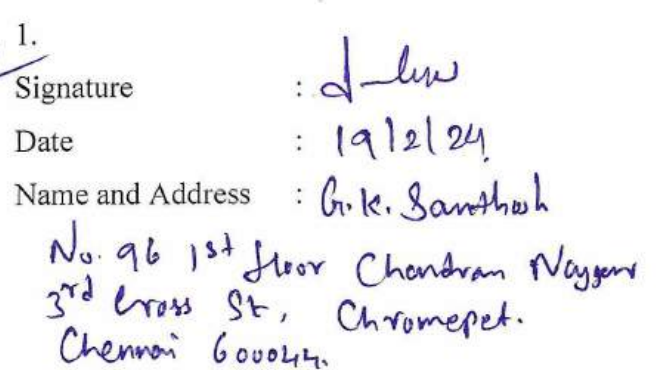 1.
Signature :
Date : 19/2/24
Name and Address : G.K. Santhosh
No. 96 1st floor Chandran Nagar
3rd Cross St, Chromepet.
Chennai 600044.